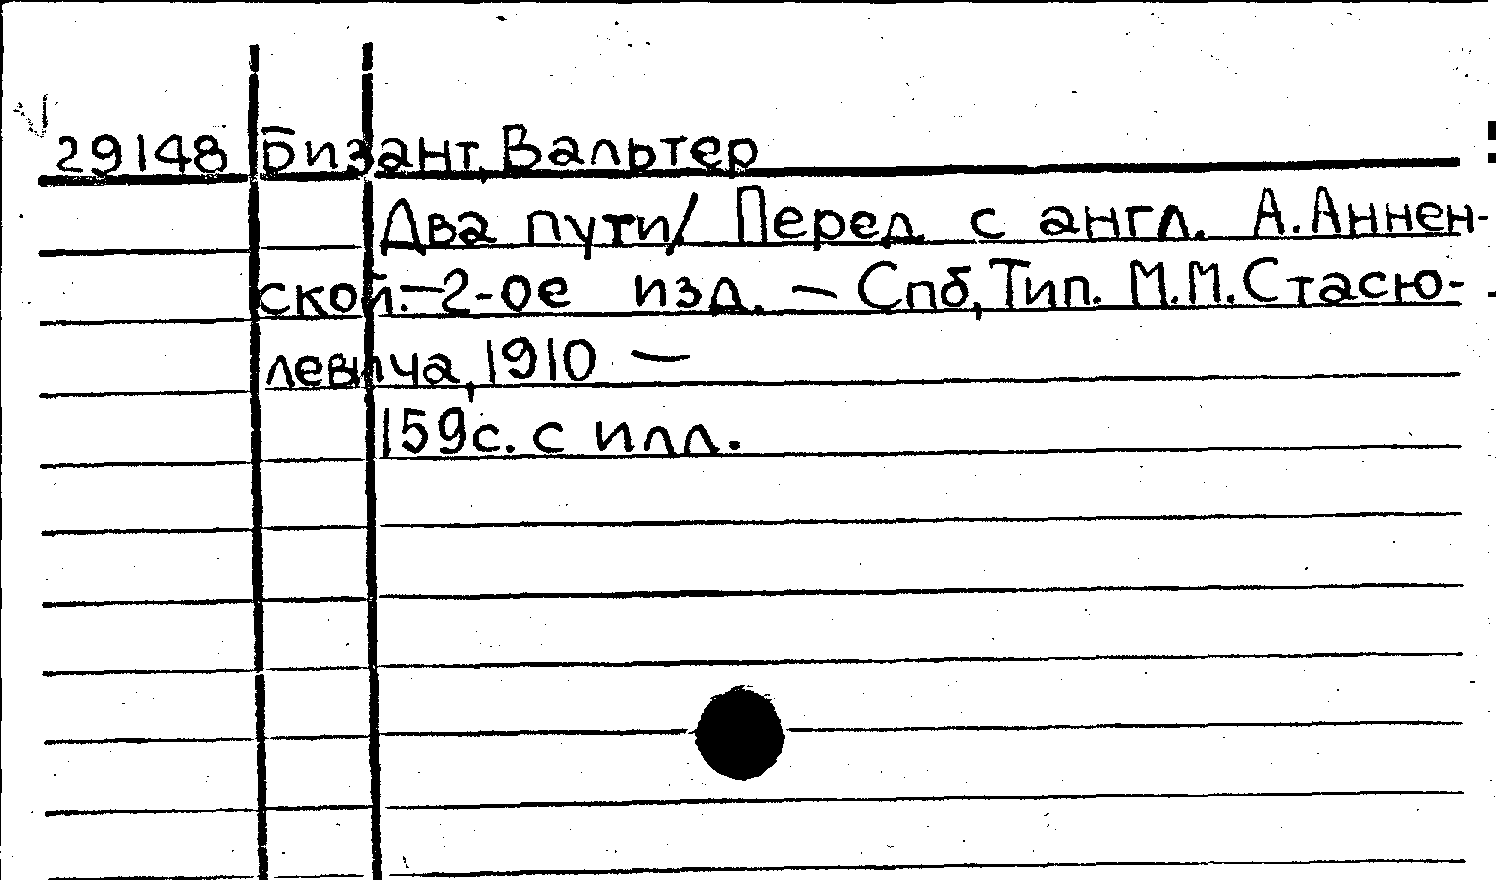 29148 Бизант, Вальтер
Два пути/ Перед. с англ. А. Аннен-
ской.—2-ое изд. — Спб, Тип. М.М. Стасю-
левича, 1910 —
159с. с илл.